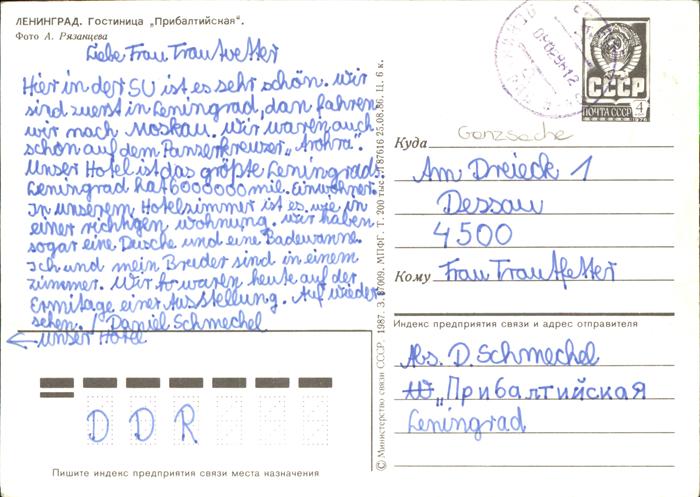 ЛЕНИНГРАД. Гостиница „Прибалтийская".
Фото А. Рязанцева
Liebe Frau Trautvetter
Hier in der SU ist es sehr schön. Wir
sind zuerst in Leningrad, dan fahren
wir nach Moskau. Wir waren auch
schon auf dem Panserkreuzer „Arohra".
Unser Hotel ist das größte Leningrads.
Leningrad hat 6000000 mil. Einwohner.
In unserem Hotelzimmer ist es wie in
einer richtigen wohnung. Wir haben
sogar eine Dusche und eine Badewanne.
Ich und mein Bruder sind in einem
zümmer. Wir waren heute auf der
Ermitage einer Ausstellung. Auf wieder
sehen. / Daniel Schmechel
← unser Hotel
DDR
Пишите индекс предприятия связи места назначения
© Министерство связи СССР. 1987. З. 87009. МПФГ. Т. 200 тыс. 87616 25.08.86. Ц. 6 к.
СССР
ПОЧТА СССР
4
Ganzsache
Куда
Am Dreieck 1
Dessau
4500
Кому Frau Trautfetter
Индекс предприятия связи и адрес отправителя
Abs. D. Schmechel
„Прибалтийская
Leningrad